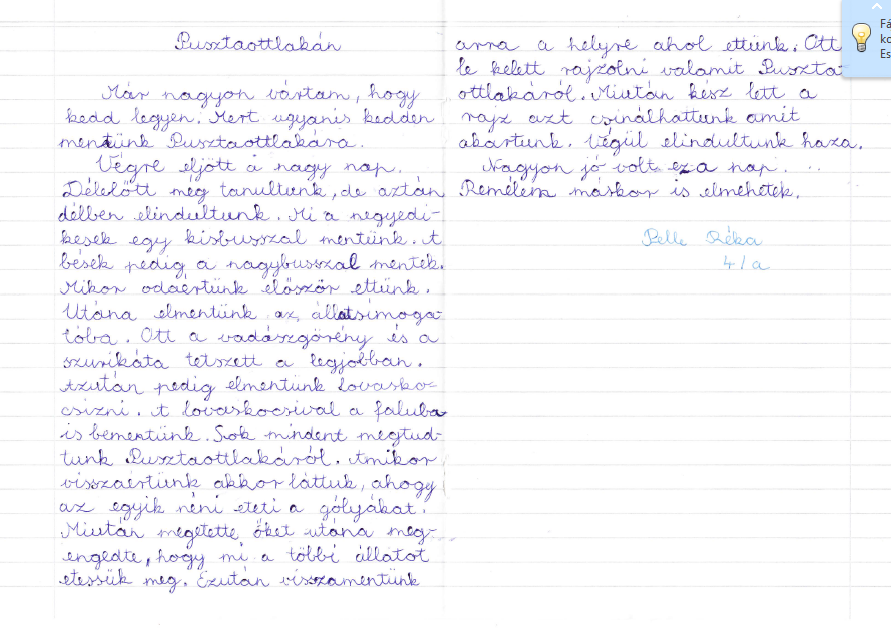 Pusztaottlakán
Már nagyon vártam, hogy
kedd legyen. Mert ugyanis kedden
mentünk Pusztaottlakára.
Végre eljött a nagy nap.
Délelőtt még tanultunk, de aztán
délben elindultunk. Mi a negyedi-
kesek egy kisbusszal mentünk. A
bések pedig a nagybusszal mentek.
Mikor odaértünk először ettünk.
Utána elmentünk az állatsimoga-
tóba. Ott a vadászgörény és a
szurikáta tetszett a legjobban.
Azután pedig elmentünk lovasko-
csizni. A lovaskocsival a faluba
is bementünk. Sok mindent megtud-
tunk Pusztaottlakáról. Amikor
visszaértünk akkor láttuk, ahogy
az egyik néni eteti a gólyákat.
Miután megetette őket utána meg-
engedte, hogy mi a többi állatot
etessük meg. Ezután visszamentünk
arra a helyre ahol ettünk. Ott
le kelett rajzolni valamit Puszta
ottlakáról. Miután kész lett a
rajz azt csinálhattunk amit
akartunk. Végül elindultunk haza.
Nagyon jó volt ez a nap.
Remélem máskor is elmehetek.
Pelle Réka
4/a
Fá
ko
Es